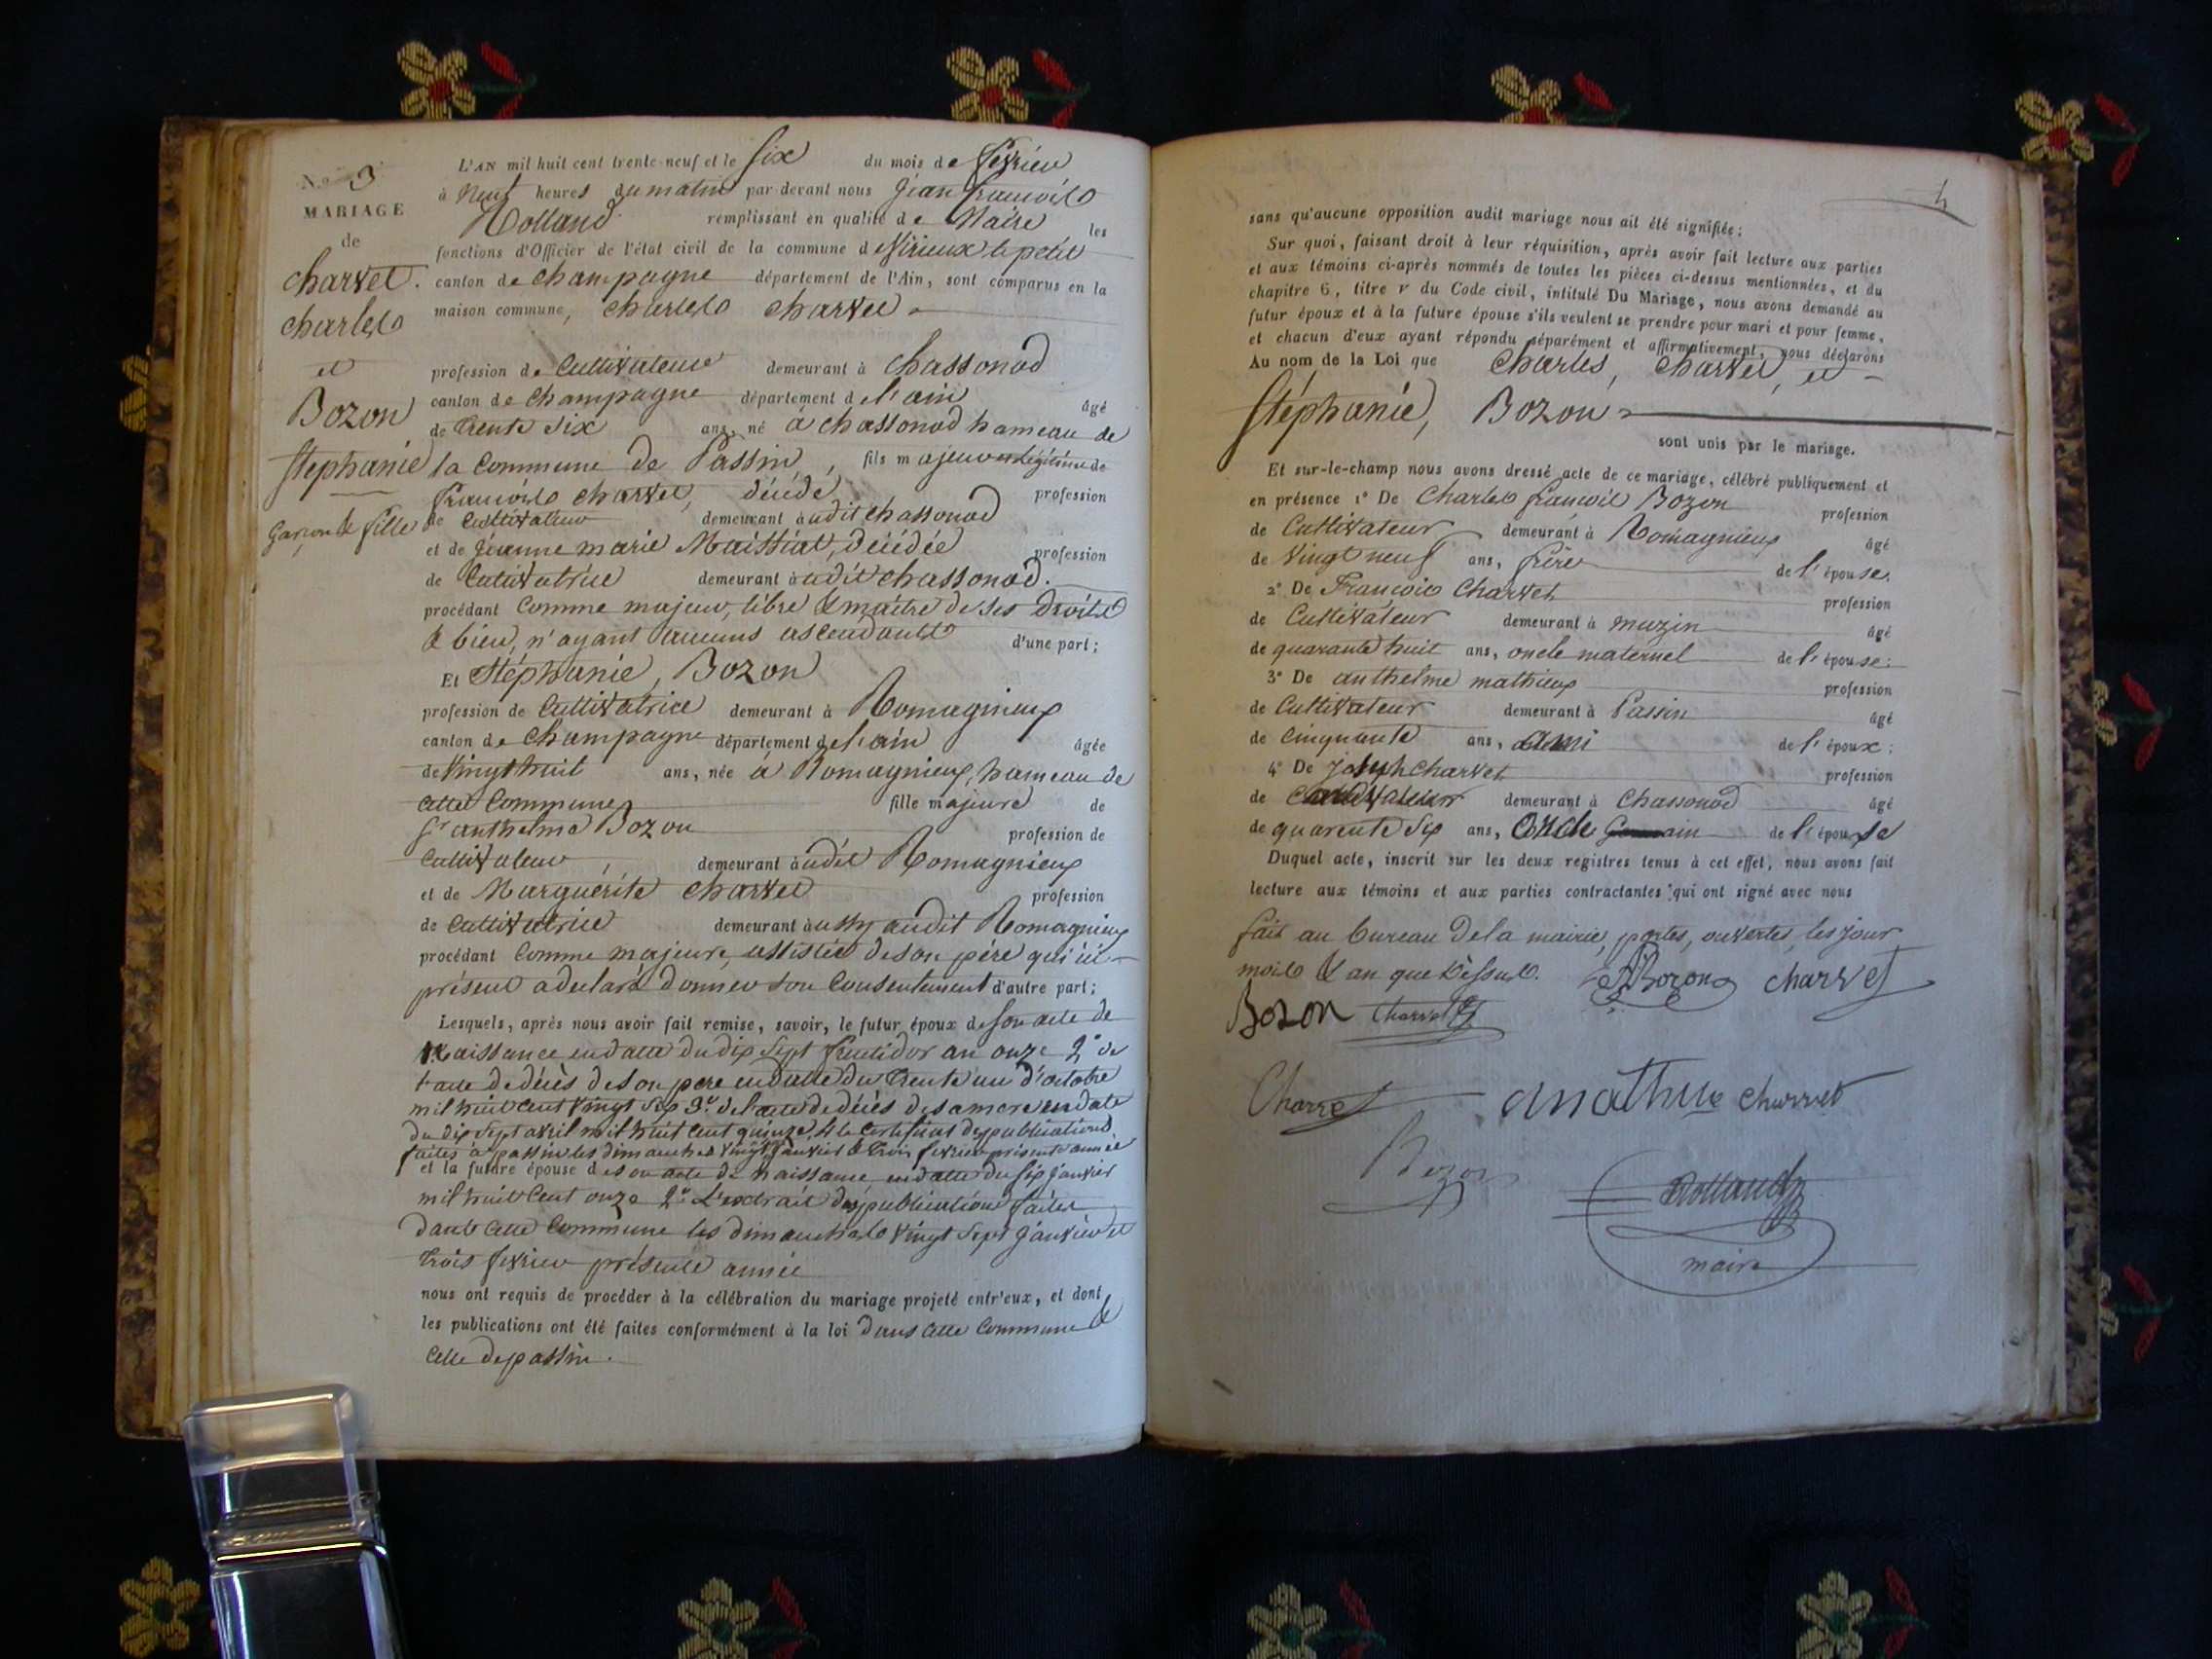 N.o 3
MARIAGE
de
charvet.
charles
et
Bozon
Stéphanie
Garçon & fille
L'AN mil huit cent trente-neuf et le Six du mois de fevrier
à Neuf heures du matin par-devant nous Jean françois
Rolland remplissant en qualité de Maire les
fonctions d'Officier de l'état civil de la commune de Virieux le petit
canton de champagne département de l'Ain, sont comparus en la
maison commune, charles charvet
profession de Cultivateur demeurant à chassonod
canton de champagne département de l'ain âgé
de trente six ans, né à chassonod hameau de
la Commune de Passin, fils majeur et légitime de
françois charvet, décédé profession
de Cultivateur demeurant audit chassonod
et de jeanne marie Maistiat, décédée profession
de Cultivatrice demeurant audit chassonod.
procédant Comme majeur, libre & maitre de ses droits
& bien, n'ayant aucuns ascendants d'une part;
Et Stéphanie, Bozon
profession de Cultivatrice demeurant à Romagnieux
canton de Champagne département de l'ain âgée
de vingt huit ans, née à Romagnieux, hameau de
cette Commune fille majeure de
Sr anthelme Bozon profession de
Cultivateur, demeurant audit Romagnieux
et de Marguérite charvet profession
de Cultivatrice demeurant aussy audit Romagnieux
procédant Comme majeure, assistée de son père qui ici
présent a déclaré donner son Consentement d'autre part;
Lesquels, après nous avoir fait remise, savoir, le futur époux de son acte de
Naissance en date du dix sept fructidor an onze 2° de
l'acte de décès de son pere en date du trente un d'octobre
mil huit cent vingt six 3° de l'acte de décès de sa mere en date
du dix sept avril mil huit cent quinze, 4° le Certificat des publications
faites à passin les dimanches vingt sept janvier & trois fevrier présente année
et la future épouse de son acte de naissance en date du six janvier
mil huit cent onze 2° L'extrait des publications faites
dans cette Commune les dimanches vingt sept janvier et
trois fevrier présente année
nous ont requis de procéder à la célébration du mariage projeté entr'eux, et dont
les publications ont été faites conformément à la loi dans cette Commune &
celle de passin.
4
sans qu'aucune opposition audit mariage nous ait été signifiée;
Sur quoi, faisant droit à leur réquisition, après avoir fait lecture aux parties
et aux témoins ci-après nommés de toutes les pièces ci-dessus mentionnées, et du
chapitre 6, titre v du Code civil, intitulé Du Mariage, nous avons demandé au
futur époux et à la future épouse s'ils veulent se prendre pour mari et pour femme,
et chacun d'eux ayant répondu séparément et affirmativement, nous déclarons
Au nom de la Loi que Charles, Charvet, et
Stéphanie, Bozon
sont unis par le mariage.
Et sur-le-champ nous avons dressé acte de ce mariage, célébré publiquement et
en présence 1° De Charles françois Bozon profession
de Cultivateur demeurant à Romagnieux âgé
de Vingt neuf ans, frère de l'épouse.
2° De François Charvet profession
de Cultivateur demeurant à muzin âgé
de quarante huit ans, oncle maternel de l'épouse;
3° De anthelme mathieux profession
de Cultivateur demeurant à Passin âgé
de Cinquante ans, ami de l'époux;
4° De joseph Charvet profession
de Cultivateur demeurant à Chassonod âgé
de quarente six ans, Oncle Germain de l'épouse
Duquel acte, inscrit sur les deux registres tenus à cet effet, nous avons fait
lecture aux témoins et aux parties contractantes qui ont signé avec nous
fait au bureau de la mairie, portes, ouvertes, les jour
mois & an que dessus. ABozon charvet
Bozon Charvet
Charvet amathieu charvet
Bozon
Rolland
maire